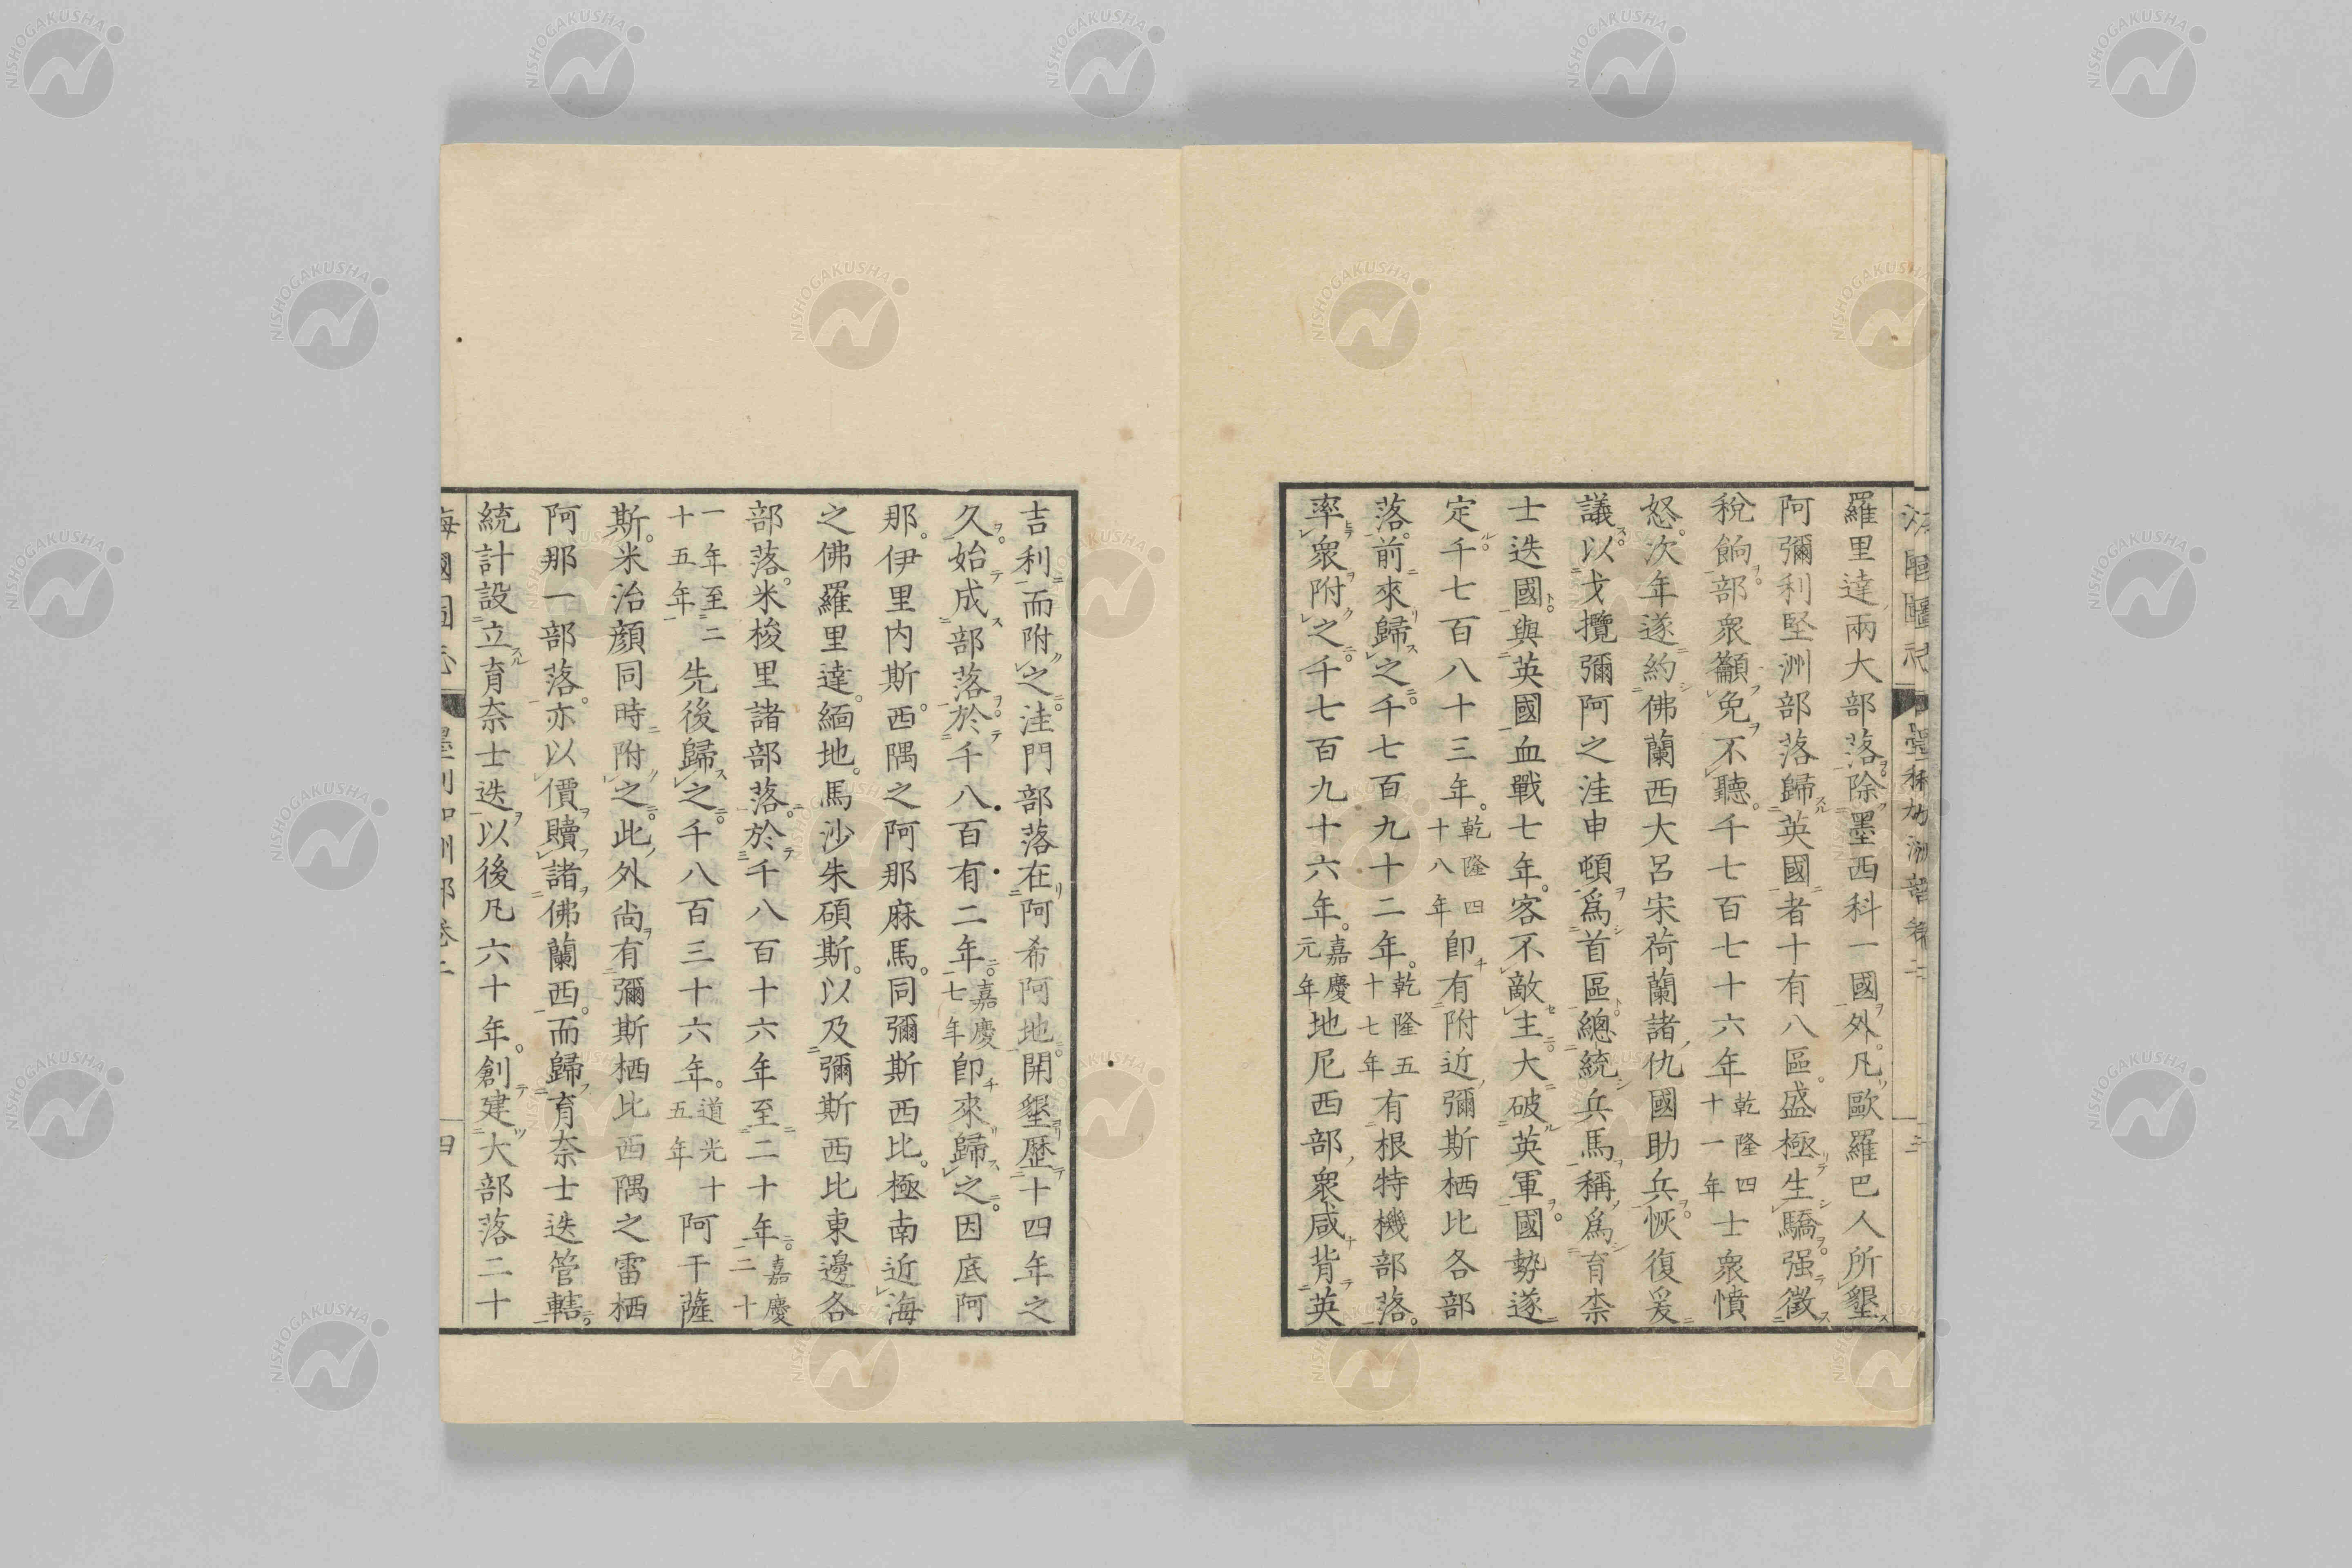 羅里達兩大部落除墨西科一國外。凡歐羅巴人所墾
阿彌利堅洲部落歸英國者十有八區。盛極生驕。强徵
稅餉。部衆籲免不聽。千七百七十六年乾隆四十一年士衆憤
怒。次年遂約佛蘭西大呂宋荷蘭諸仇國助兵。恢復爰
議。以戈攬彌阿之洼申頓爲首區總統兵馬稱爲育柰
士迭國。與英國血戰七年。客不敵主。大破英軍。國勢遂
定。千七百八十三年。乾隆四十八年卽有附近彌斯栖比各部
落。前來歸之。千七百九十二年。乾隆五十七年有根特機部落。
率衆附之。千七百九十六年。嘉慶元年地尼西部衆咸背英
吉利而附之。洼門部落在阿希阿地。開墾歷十四年之
久。始成部落。於千八百有二年。嘉慶七年卽來歸之。因底阿
那。伊里内斯。西隅之阿那麻馬。同彌斯西比。極南近海
之佛羅里達。緬地。馬沙朱碩斯。以及彌斯西比東邊各
部落。米梭里諸部落。於千八百十六年至二十年。嘉慶二十
一年至二十五年先後歸之。千八百三十六年。道光十五年阿干薩
斯。米治顏同時附之。此外尚有彌斯栖比西隅之雷栖
阿那一部落。亦以價贖諸佛蘭西。而歸育奈士迭管轄。
統計設立育奈士迭以後凡六十年。創建大部落二十
海國圖志 墨利加洲部卷二 四
NISHOGAKUSHA